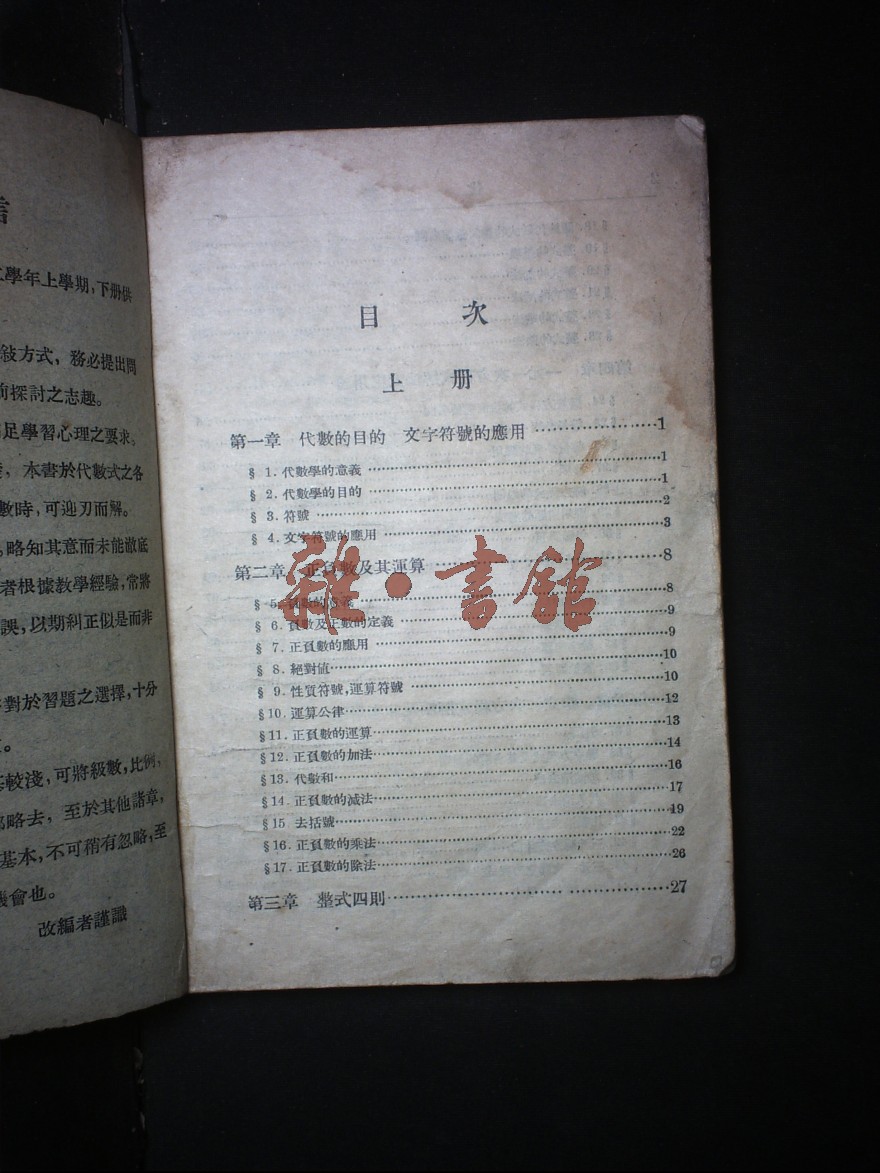 言
學年上學期,下册供
敍方式,務必提出問
前探討之志趣。
足學習心理之要求。
本書於代數式之各
數時,可迎刃而解。
略知其意而未能徹底
者根據教學經驗,常將
誤,以期糾正似是而非
對於習題之選擇,十分
。
較淺,可將級數,比例,
略去,至於其他諸章,
基本,不可稍有忽略,至
機會也。
改編者謹識
目 次
上 册
第一章 代數的目的 文字符號的應用 ……………………1
§ 1. 代數學的意義 ……………………1
§ 2. 代數學的目的 ……………………1
§ 3. 符號 ……………………2
§ 4. 文字符號的應用 ……………………3
第二章 正負數及其運算 ……………………8
§ 5. 負數的意義 ……………………8
§ 6. 負數及正數的定義 ……………………9
§ 7. 正負數的應用 ……………………9
§ 8. 絕對値 ……………………10
§ 9. 性質符號,運算符號 ……………………10
§10. 運算公律 ……………………12
§11. 正負數的運算 ……………………13
§12. 正負數的加法 ……………………14
§13. 代數和 ……………………16
§14. 正負數的減法 ……………………17
§15 去括號 ……………………19
§16. 正負數的乘法 ……………………22
§17. 正負數的除法 ……………………26
第三章 整式四則 ……………………27
雜·書館